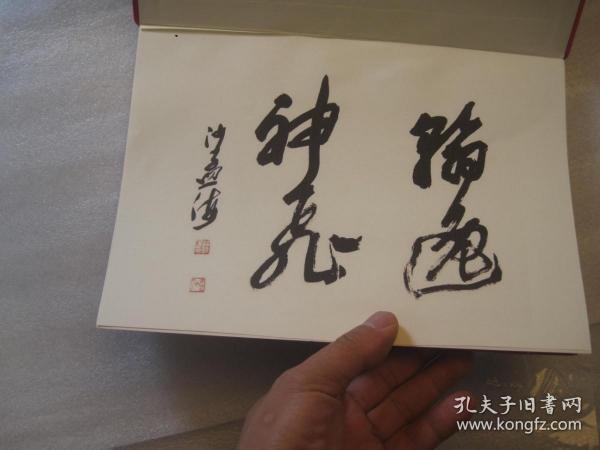 翰逸
神飛
沙孟海
孔夫子旧书网
www.kongfz.com